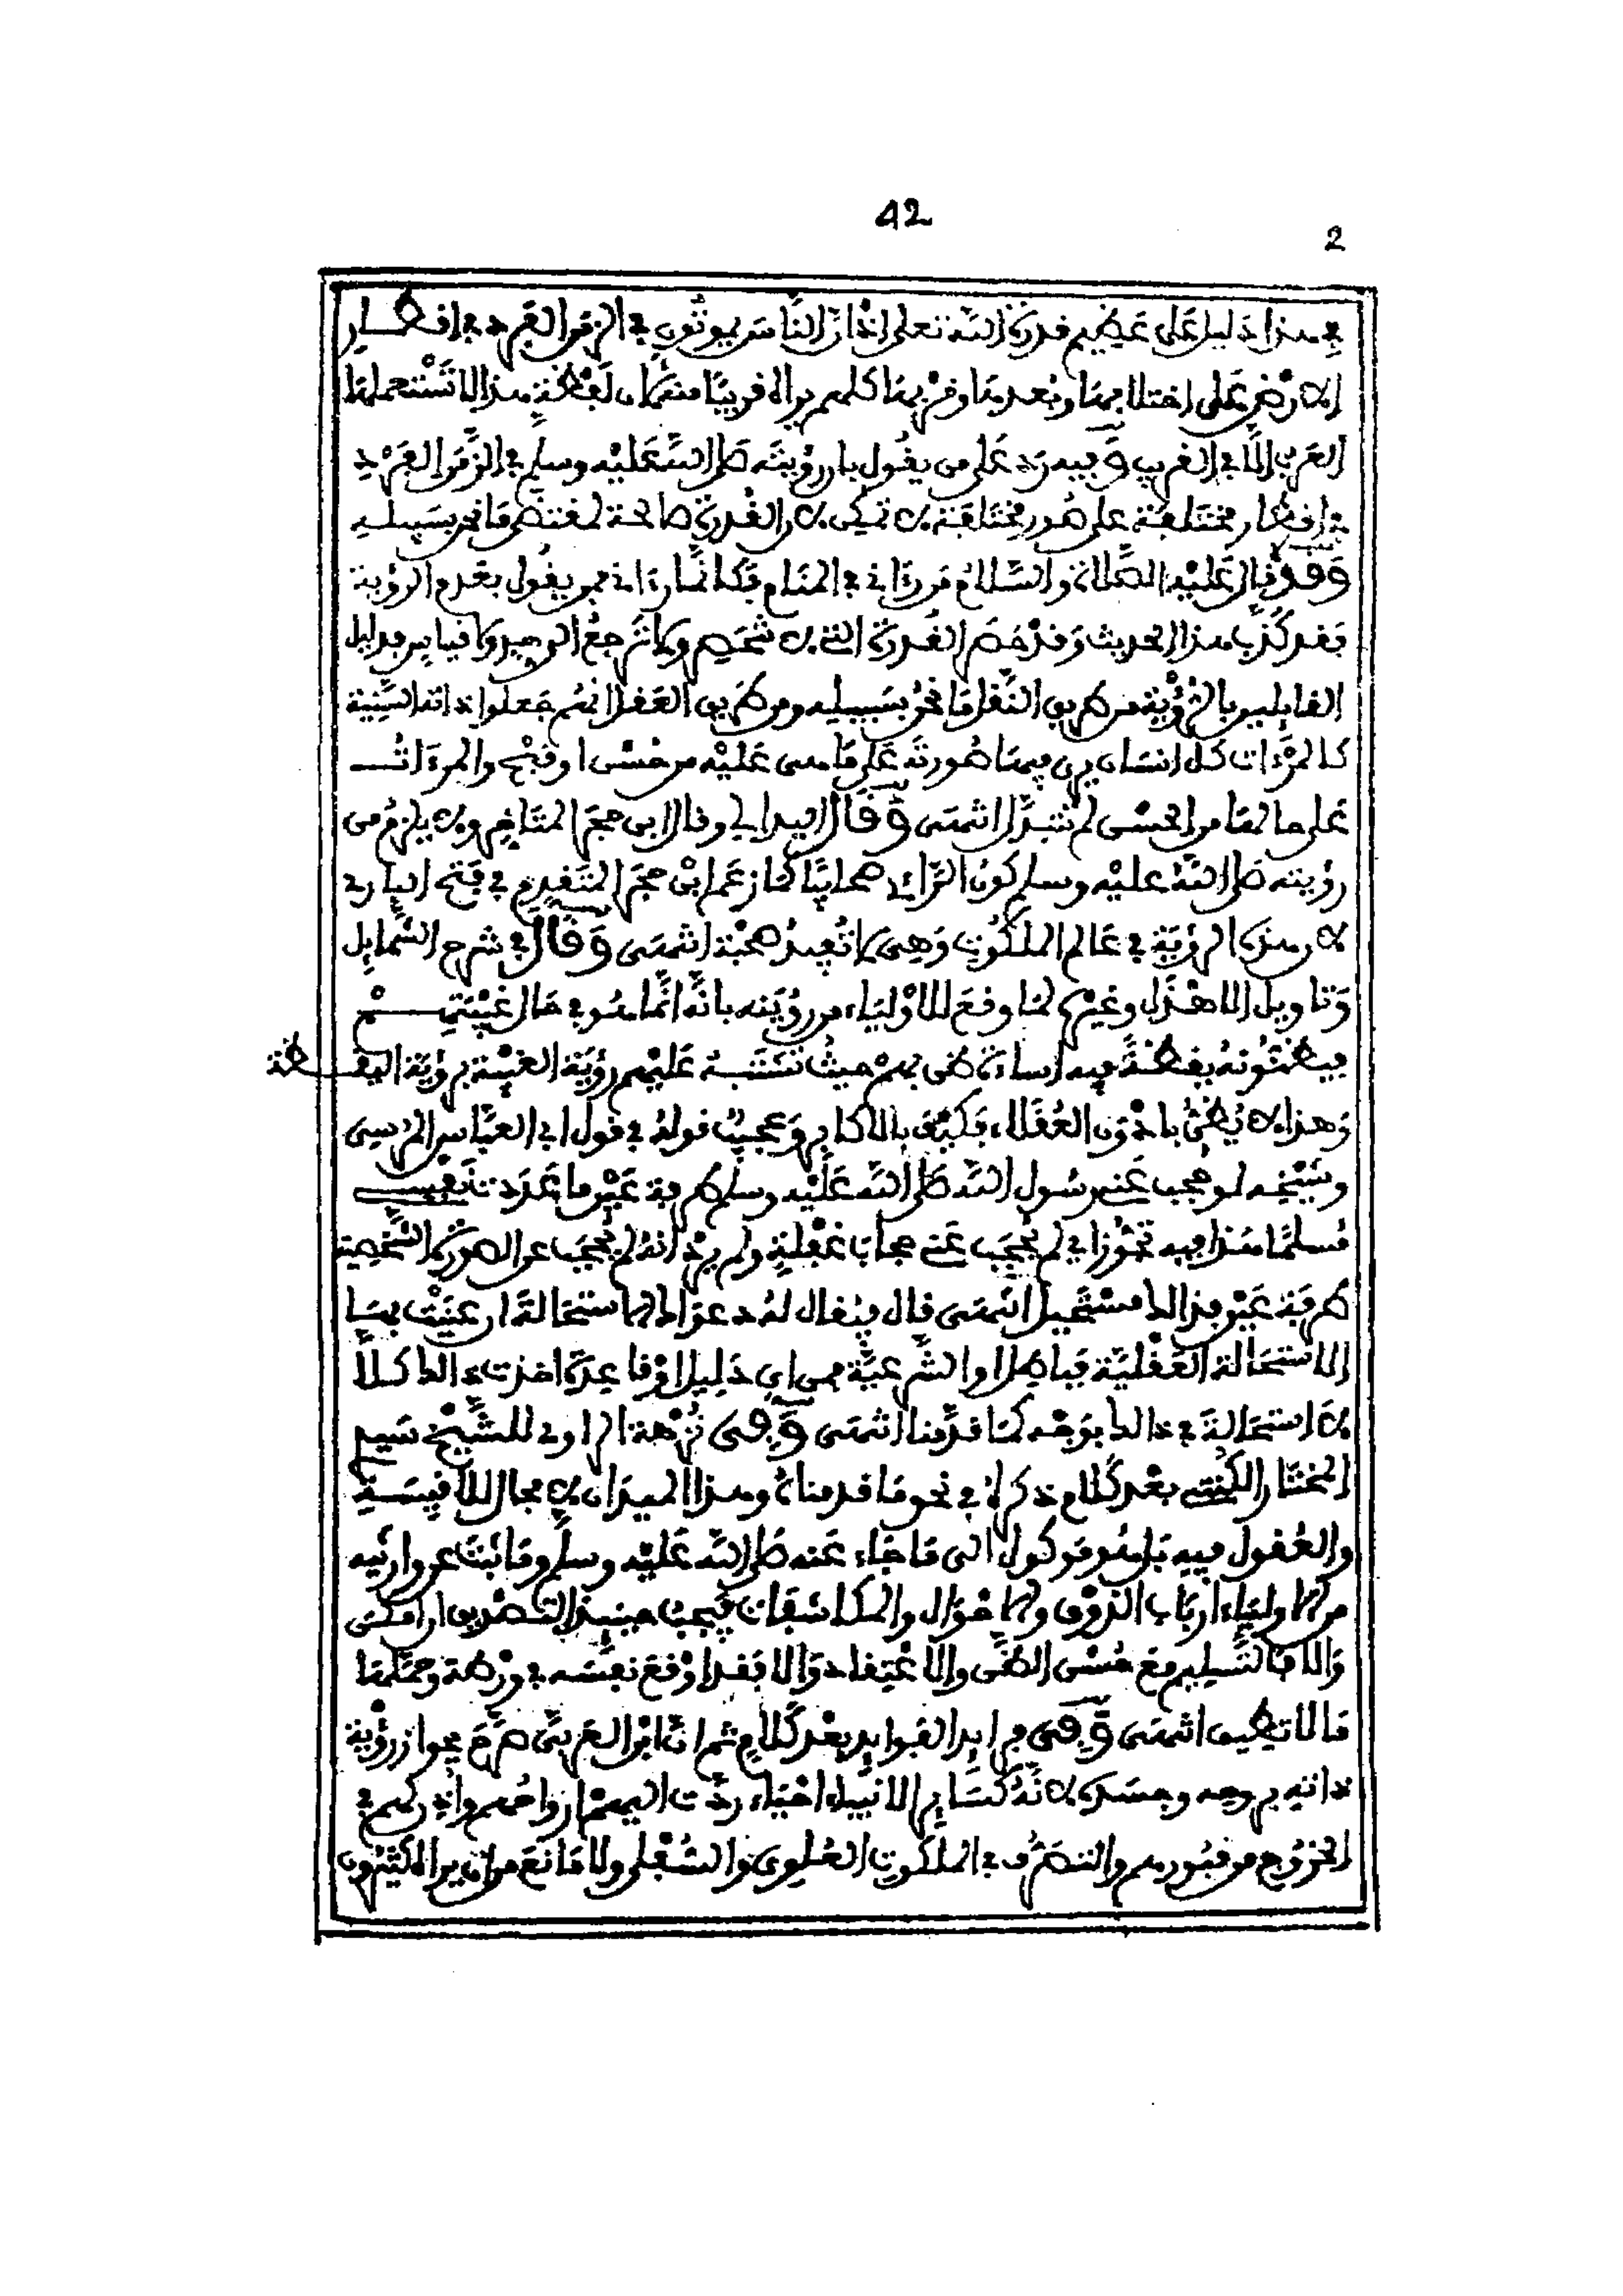 42
2
في هذا دليل على عظيم قدرة الله تعلى اذ ان الناس يموتون في الزمن الفرد في افطار
الارض على اختلافها وبعدها وقربها كلهم يراه قريبا منه لان لفظة هذا لا تستعملها
العرب الا في القريب وفيه رد على من يقول بان رؤيته صلى الله عليه وسلم في الزمن الفرد
في افطار مختلفة على صور مختلفة لا تمكن لان القدرة صالحة لمقتضى ما نحن بسبيله
وقد قال عليه الصلاة والسلام من رءاني في المنام فكانما رءاني فمن يقول بعدم الرؤية
فقد كذب هذا الحديث وقد خصص القدرة التي لا تنحصر ولا ترجع الى حصر ولا قياس فدليل
القايلين بالرؤية من طريق النقل ما نحن بسبيله ومن طريق العقل انهم جعلوا ذاته السنية
كالمرءات كل انسان يرى فيها صورته على ما هى عليه من حسن او قبح والمرءات
على حالها من الحسن لم تتبدل انتهى وقال اليدالي وقال ابن حجر المتاخر ولا يلزم من
رؤيته صلى الله عليه وسلم كون الرائ صحابيا كما زعم ابن حجر المتقدم في فتح الباري
لان هذه الرؤية في عالم الملكوت وهى لا تفيد صحبة انتهى وقال في شرح الشمايل
وتاويل الاهدل وغيره لما وقع للاولياء من رؤيته بانه انما هو في حال غيبتهم
فيظنونه يقظة فيه اساءة ظن بهم حيث تشتبه عليهم رؤية الغيبة برؤية اليقظة
وهذا لا يظن بادون العقلاء فكيف بالاكابر وعجيب قوله في قول ابي العباس المرسي
وشيخه لو حجب عني رسول الله صلى الله عليه وسلم طرفة عين ما عددت نفسي
مسلما هذا فيه تجوز اي لم يحجب عني حجاب غفلة ولم يرد انه لم يحجب عن الصورة الشخصية
طرفة عين فذالك مستحيل انتهى قال فيقال له دعواك الاستحالة ان عنيت بها
الاستحالة العقلية فباطل او الشرعية فمن اي دليل او قاعدة اخذت ذالك كلا
لا استحالة في ذالك بوجه كما قدمنا انتهى وفى نزهة الراوى للشيخ سيد
المختار الكنتي بعد كلام ذكره في نحو ما قدمناه وهذا الميدان لا مجال للاقيسة
والعقول فيه بل هو موكول الى ما جاء عنه صلى الله عليه وسلم وما ثبت عن وارثيه
من الاولياء ارباب الذوق والاحوال والمكاشفات فيجب حينئذ التصديق ان امكن
والا فالتسليم مع حسن الظن والاعتقاد والا فقد اوقع نفسه في ورطة وحملها
ما لا تطيق انتهى وفى فرايد الفوايد بعد كلام ثم ان ابن العربي صرح بجواز رؤية
ذاته بروحه وجسده لانه كساير الانبياء احياء ردت اليهم ارواحهم واذن لهم في
الخروج من قبورهم والتصرف في الملكوت العلوى والسفلى ولا مانع من ان يراه كثيرون